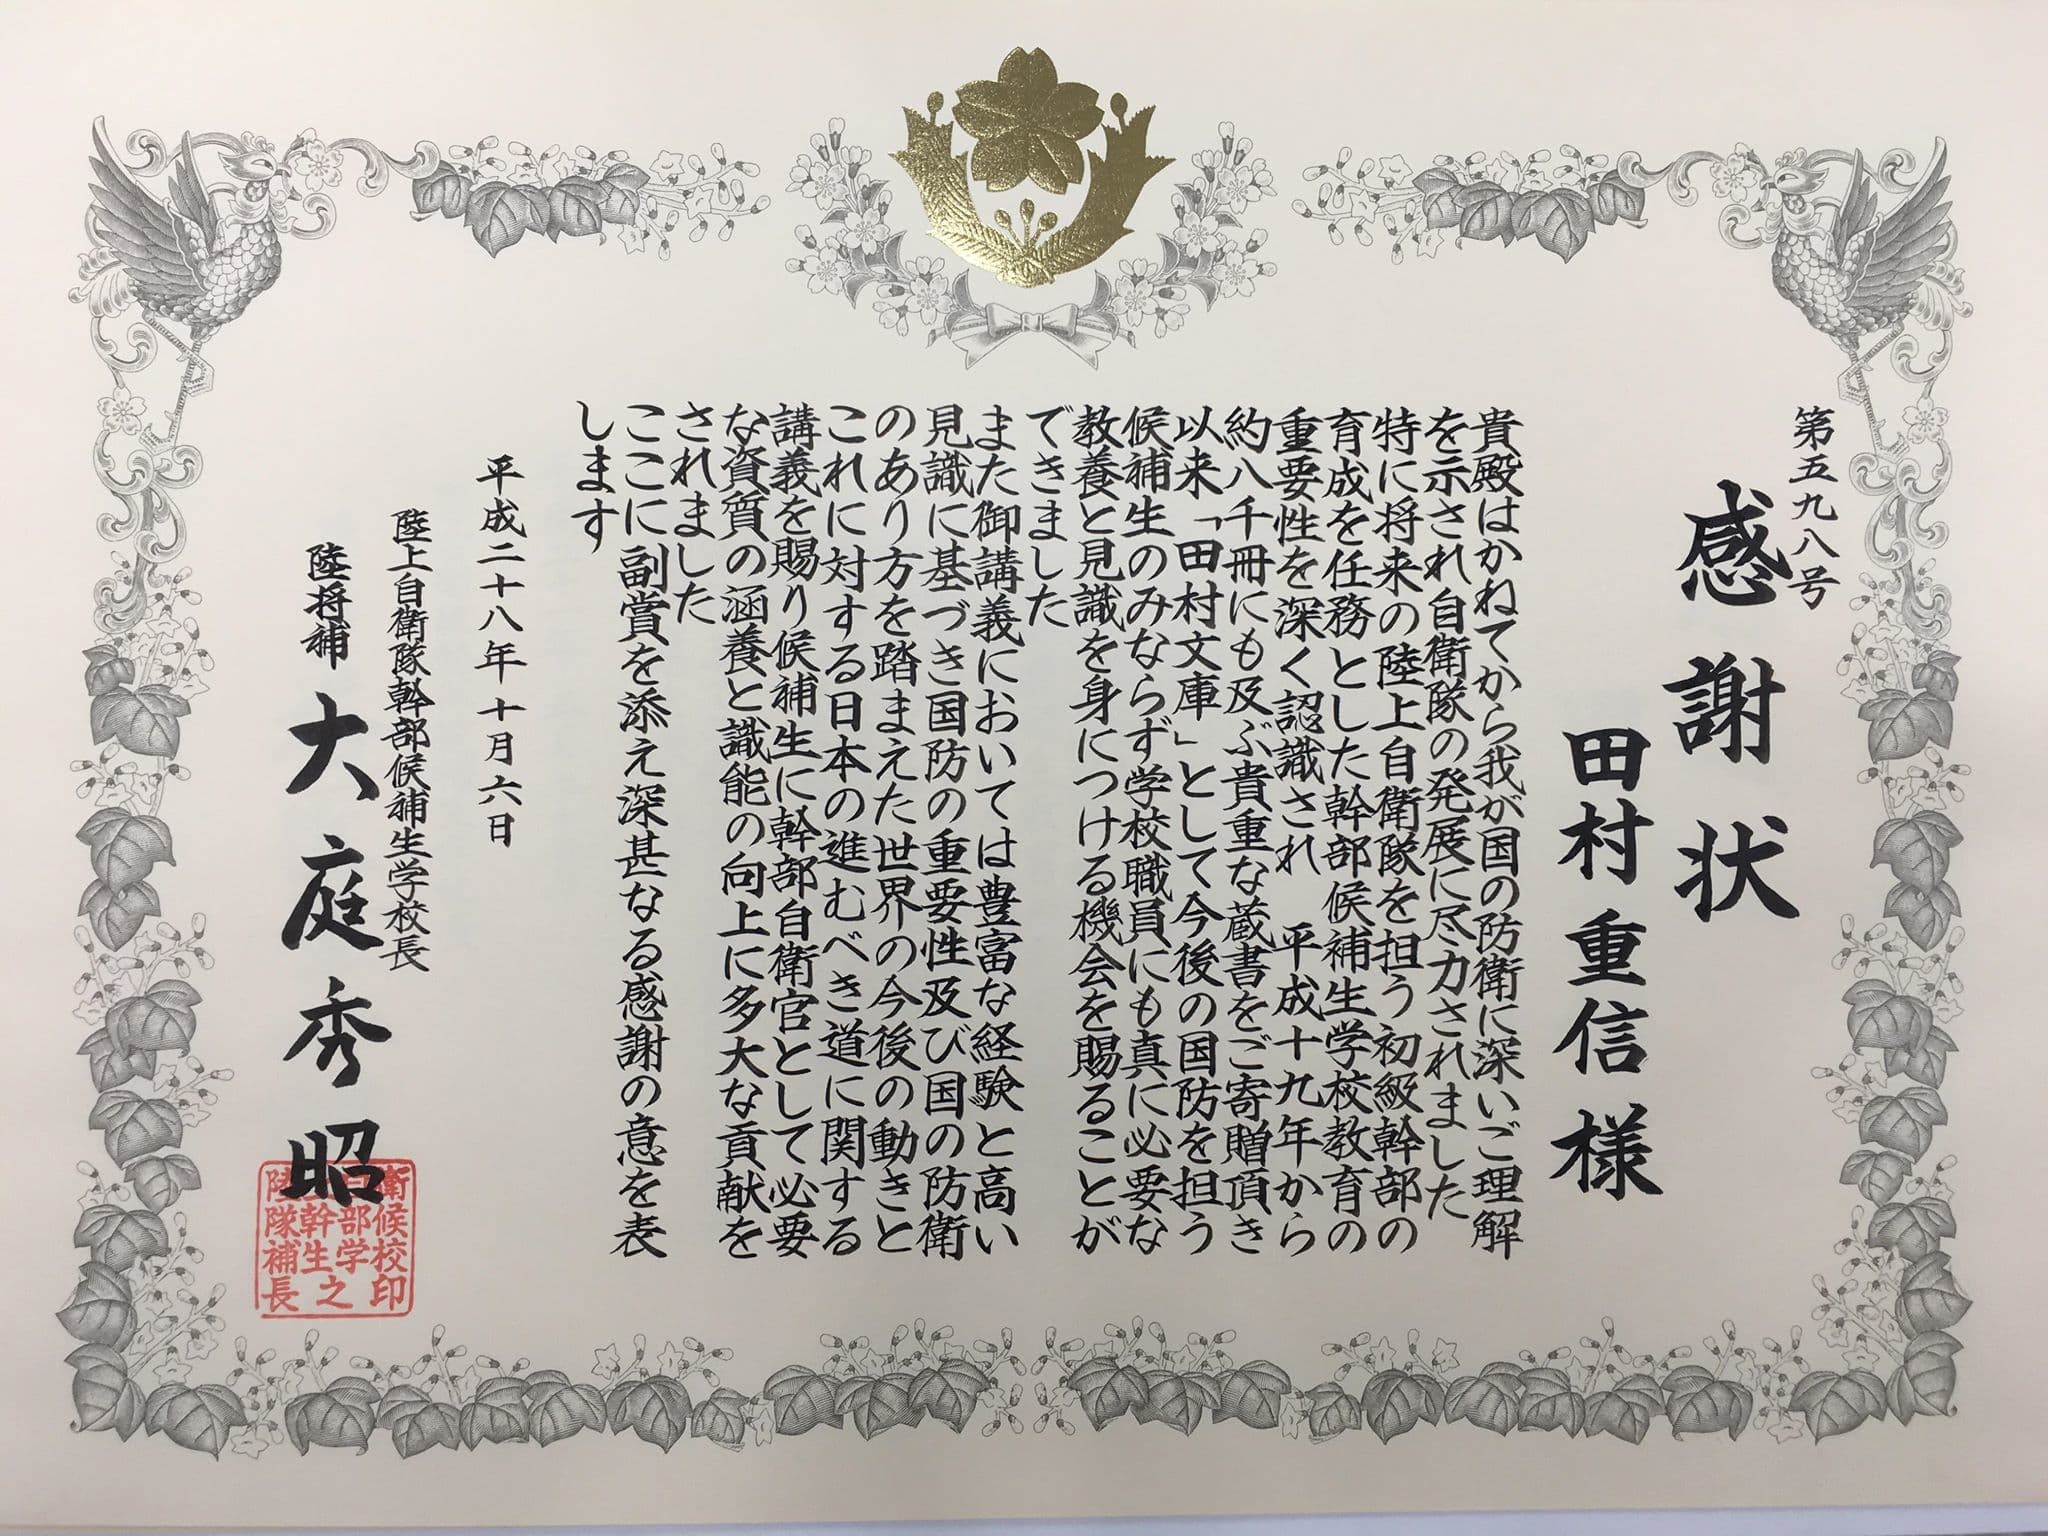 第五九八号
感謝状
田村重信様
貴殿はかねてから我が国の防衛に深いご理解
を示され自衛隊の発展に尽力されました
特に将来の陸上自衛隊を担う初級幹部の
育成を任務とした幹部候補生学校教育の
重要性を深く認識され 平成十九年から
約八千冊にも及ぶ貴重な蔵書をご寄贈頂き
以来「田村文庫」として今後の国防を担う
候補生のみならず学校職員にも真に必要な
教養と見識を身につける機会を賜ることが
できました
また御講義においては豊富な経験と高い
見識に基づき国防の重要性及び国の防衛
のあり方を踏まえた世界の今後の動きと
これに対する日本の進むべき道に関する
講義を賜り候補生に幹部自衛官として必要
な資質の涵養と識能の向上に多大な貢献を
されました
ここに副賞を添え深甚なる感謝の意を表
します
平成二十八年十月六日
陸上自衛隊幹部候補生学校長
陸将補 大庭秀昭
衛候校印
自部学之
上幹生
陸隊補長